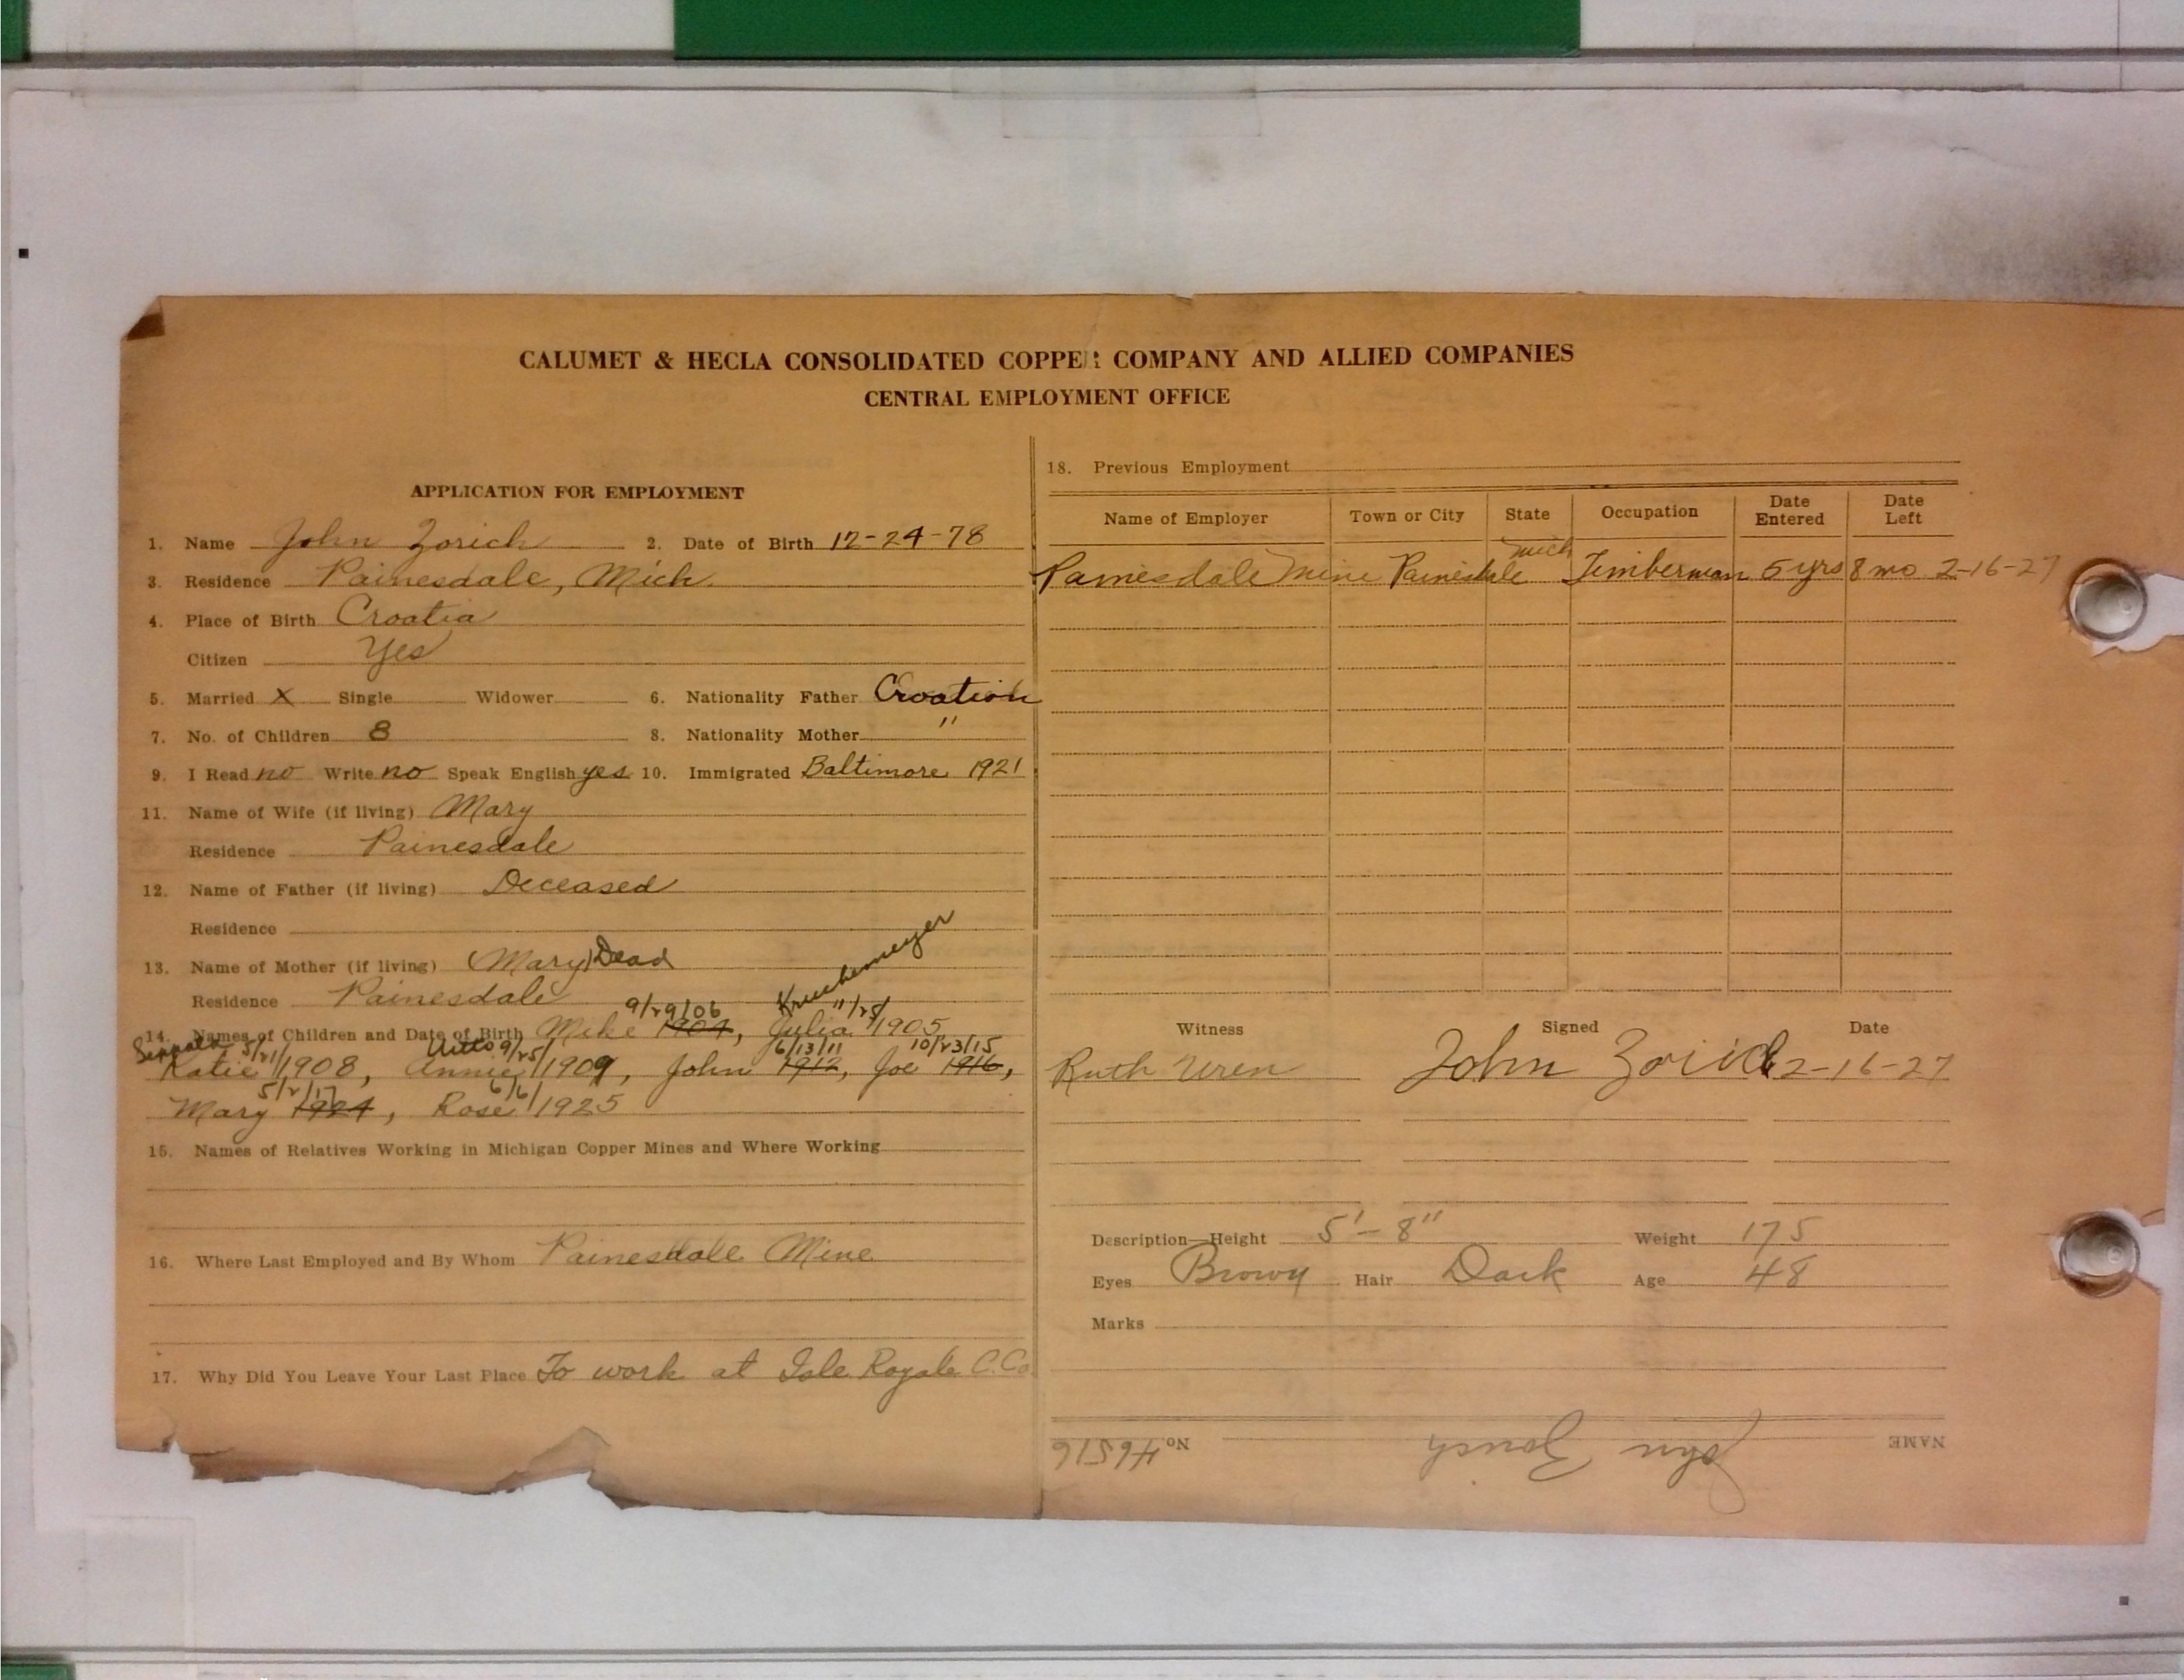 CALUMET & HECLA CONSOLIDATED COPPER COMPANY AND ALLIED COMPANIES
CENTRAL EMPLOYMENT OFFICE
APPLICATION FOR EMPLOYMENT
1. Name John Zorich 2. Date of Birth 12-24-78
3. Residence Painesdale, Mich.
4. Place of Birth Croatia
Citizen Yes
5. Married X Single Widower 6. Nationality Father Croation
7. No. of Children 8 8. Nationality Mother "
9. I Read no Write no Speak English yes 10. Immigrated Baltimore 1921
11. Name of Wife (if living) Mary
Residence Painesdale
12. Name of Father (if living) Deceased
Residence
13. Name of Mother (if living) (Mary) Dead
Residence Painesdale
9/29/06 11/25/
14. Names of Children and Date of Birth Mike 1904, Julia 1905,
5/21/ 9/25/ 6/13/11 10/23/15
Katie 1908, Annie 1909, John 1912, Joe 1916,
5/2/17 6/6/
Mary 1924, Rose 1925
15. Names of Relatives Working in Michigan Copper Mines and Where Working
16. Where Last Employed and By Whom Painesdale Mine
17. Why Did You Leave Your Last Place To work at Isle Royale C. Co
18. Previous Employment
Name of Employer Town or City State Occupation Date Entered Date Left
Painesdale Mine Painesdale Mich Timberman 5 yrs 8 mo 2-16-27
Witness Signed Date
Ruth Uren John Zorich 2-16-27
Description—Height 5'-8" Weight 175
Eyes Brown Hair Dark Age 48
Marks
NAME John Zorich No. 46516